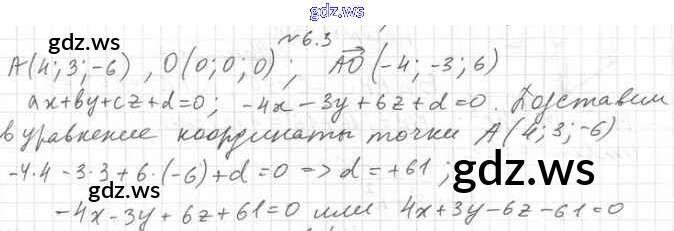 gdz.ws
№6.3
gdz.ws
A(4;3;-6), O(0;0;0); AO(-4;-3;6)
ax+by+cz+d=0; -4x-3y+6z+d=0. Подставим
в уравнение координаты точки A(4;3;-6)
-4·4-3·3+6·(-6)+d=0 => d=+61;
gdz.ws
gdz.ws
-4x-3y+6z+61=0 или 4x+3y-6z-61=0
gdz.ws